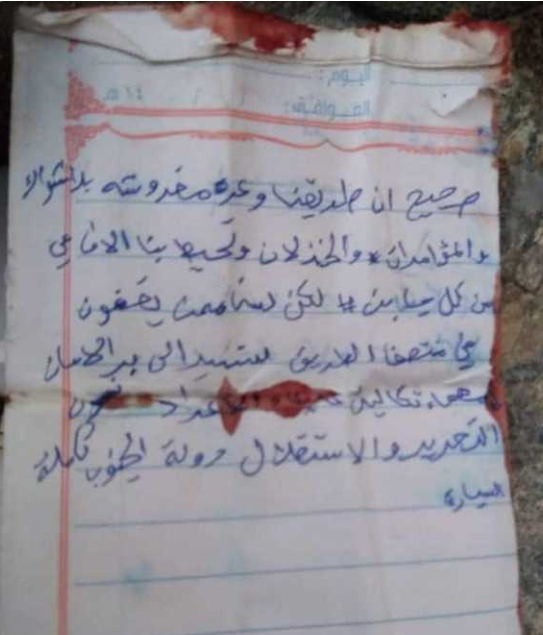 اليوم :
الموافق : / / ١٤ هـ
صحيح ان طريقنا وعره مفروشه بالاشواك
والمؤامرات والخذلان وتحيط بنا الافاعي
من كل جانب لكن لسنا ممن يقفون
في منتصف الطريق سنسير الى بر الامان
مهما تكاليف
التحرير والاستقلال دولة الجنوب كاملة
السيادة